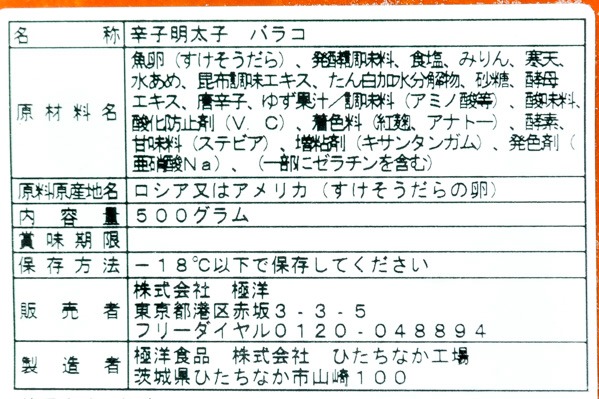 名称 辛子明太子 バラコ
原材料名 魚卵（すけそうだら）、発酵調味料、食塩、みりん、寒天、
水あめ、昆布調味エキス、たん白加水分解物、砂糖、酵母
エキス、唐辛子、ゆず果汁／調味料（アミノ酸等）、酸味料、
酸化防止剤（V．C）、着色料（紅麹、アナトー）、酵素、
甘味料（ステビア）、増粘剤（キサンタンガム）、発色剤（
亜硝酸Na）、（一部にゼラチンを含む）
原料原産地名 ロシア又はアメリカ（すけそうだらの卵）
内容量 500グラム
賞味期限
保存方法 －18℃以下で保存してください
販売者 株式会社 極洋
東京都港区赤坂3-3-5
フリーダイヤル0120-048894
製造者 極洋食品 株式会社 ひたちなか工場
茨城県ひたちなか市山崎100